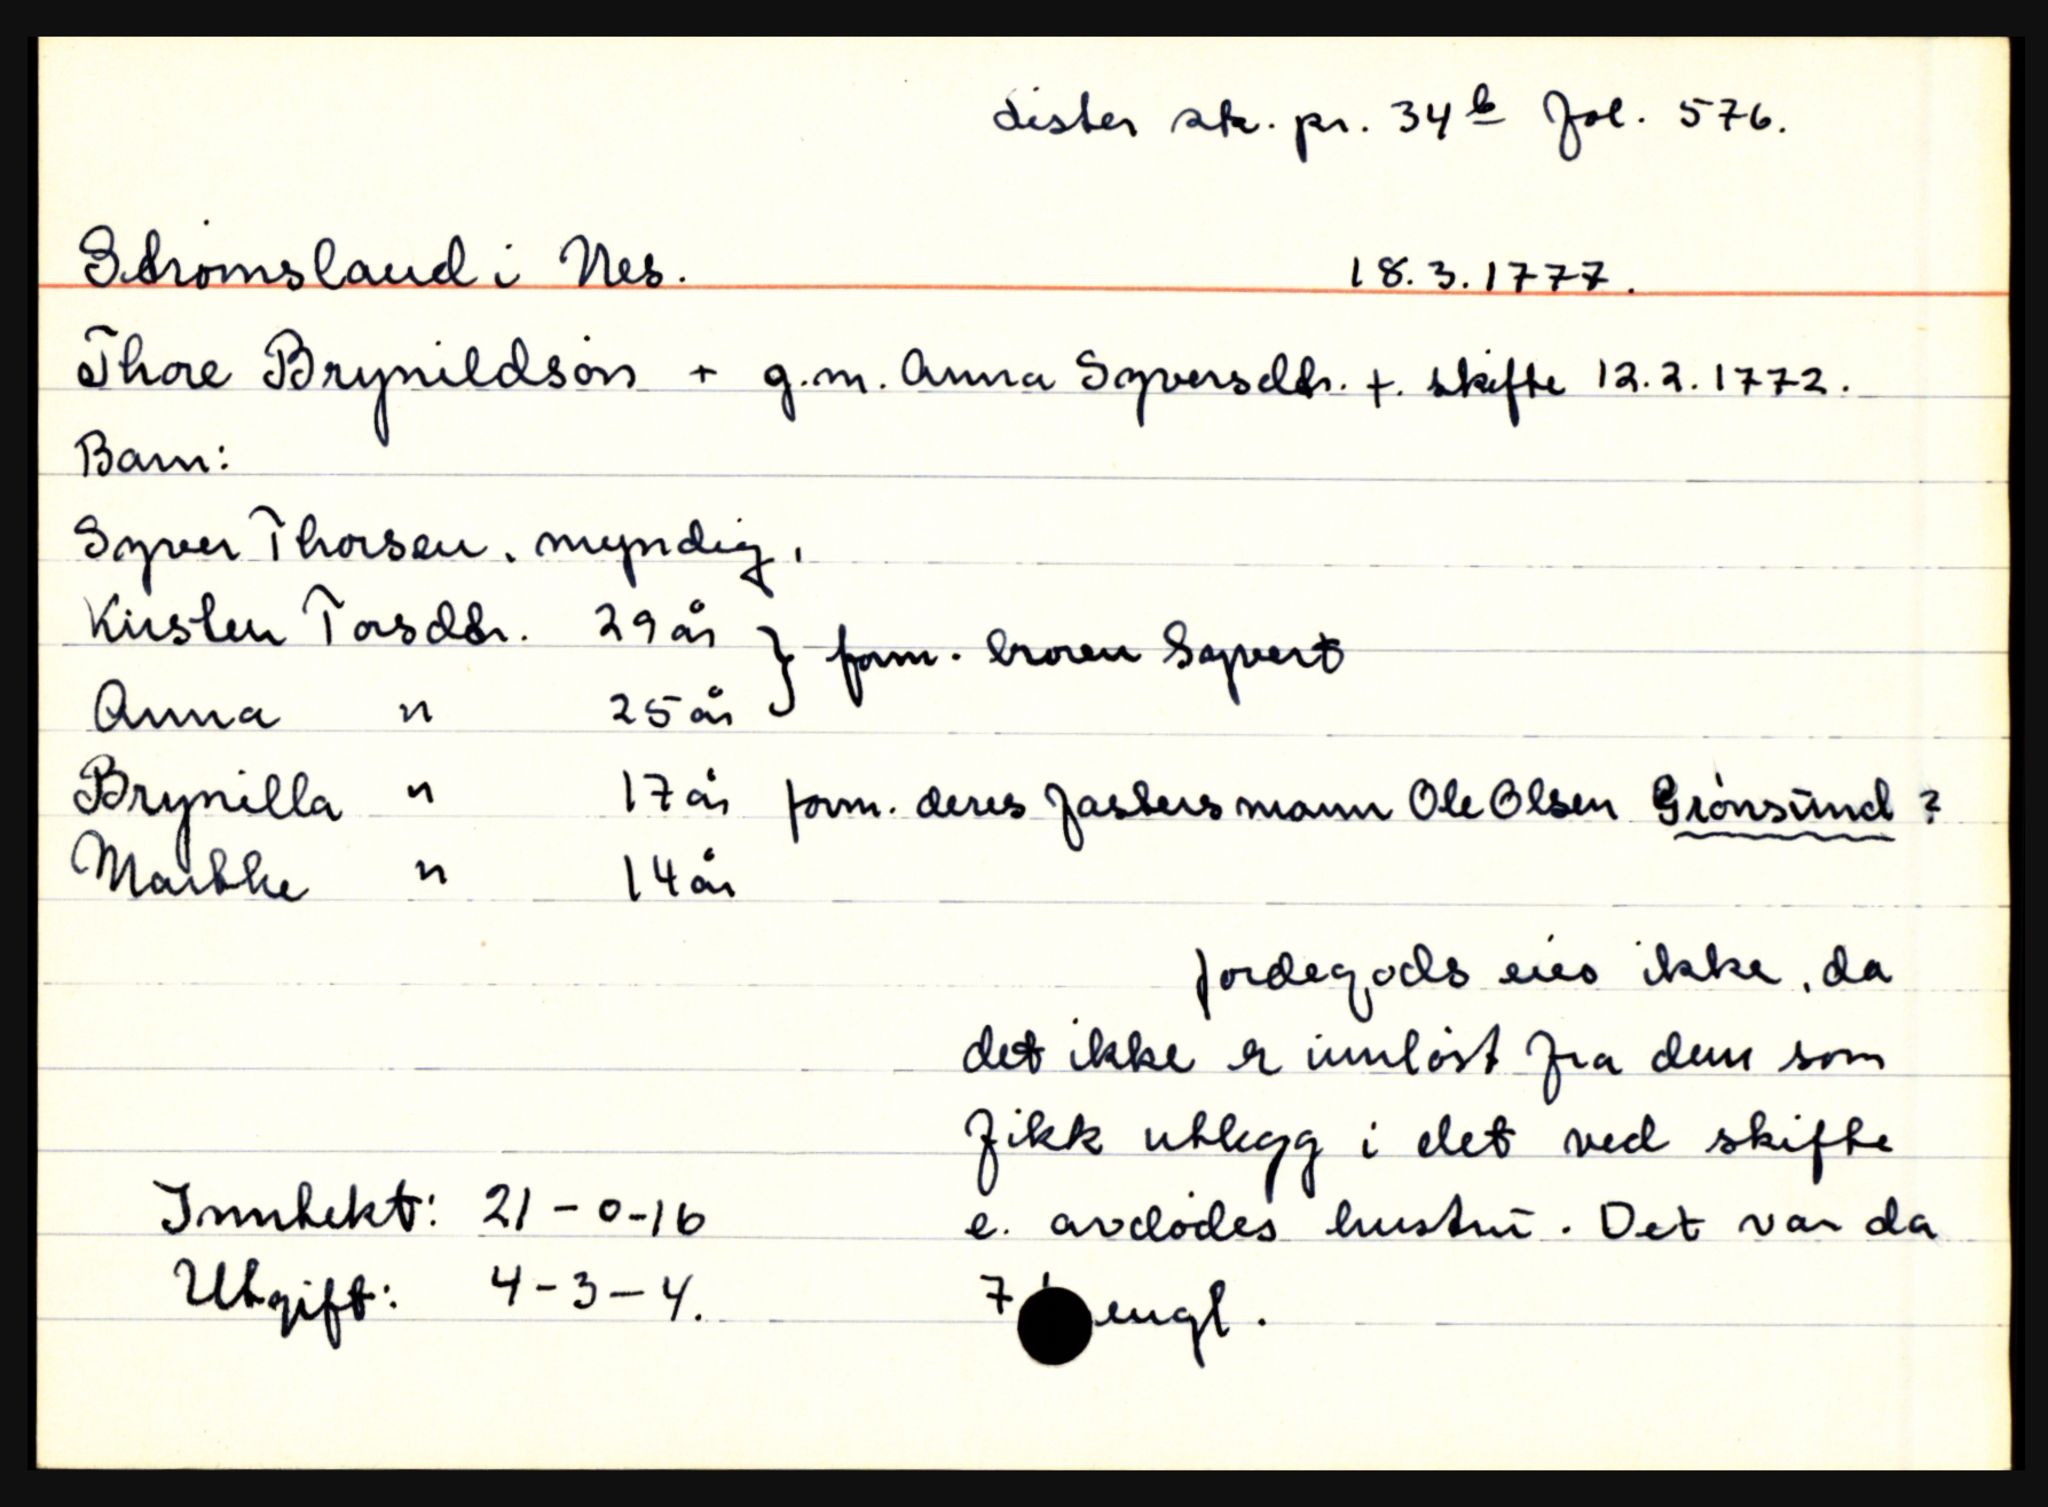 Lister sk. pr. 34 b fol. 576.
Strømsland i Nes. 18.3.1777.
Thore Brynildsøn + g.m. Anna Syversdtr. +. skifte 12.2.1772.
Barn:
Syver Thorsen, myndig,
Kirsten Torsdtr. 29 år } form. broren Syvert
Anna " 25 år
Brynilla " 17 år form. deres fasters mann Ole Olsen Grønsund ?
Marthe " 14 år
Jordegods eies ikke, da
det ikke er innløst fra dem som
fikk utlegg i det ved skifte
e. avdødes hustru. Det var da
Inntekt: 21-0-16
Utgift: 4-3-4.
7 engl.